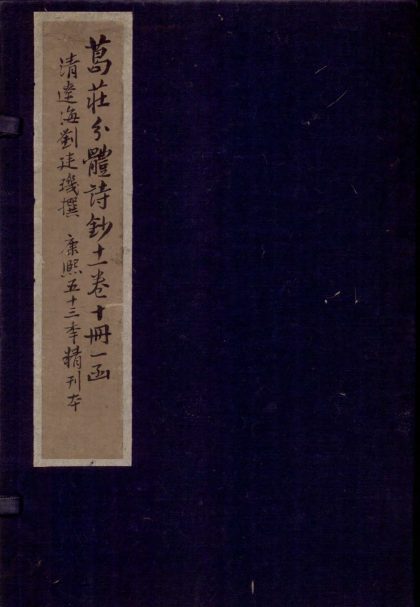 葛莊分體詩鈔十一卷十冊一函
清遼海劉廷璣撰 康熙五十三秊精刊本